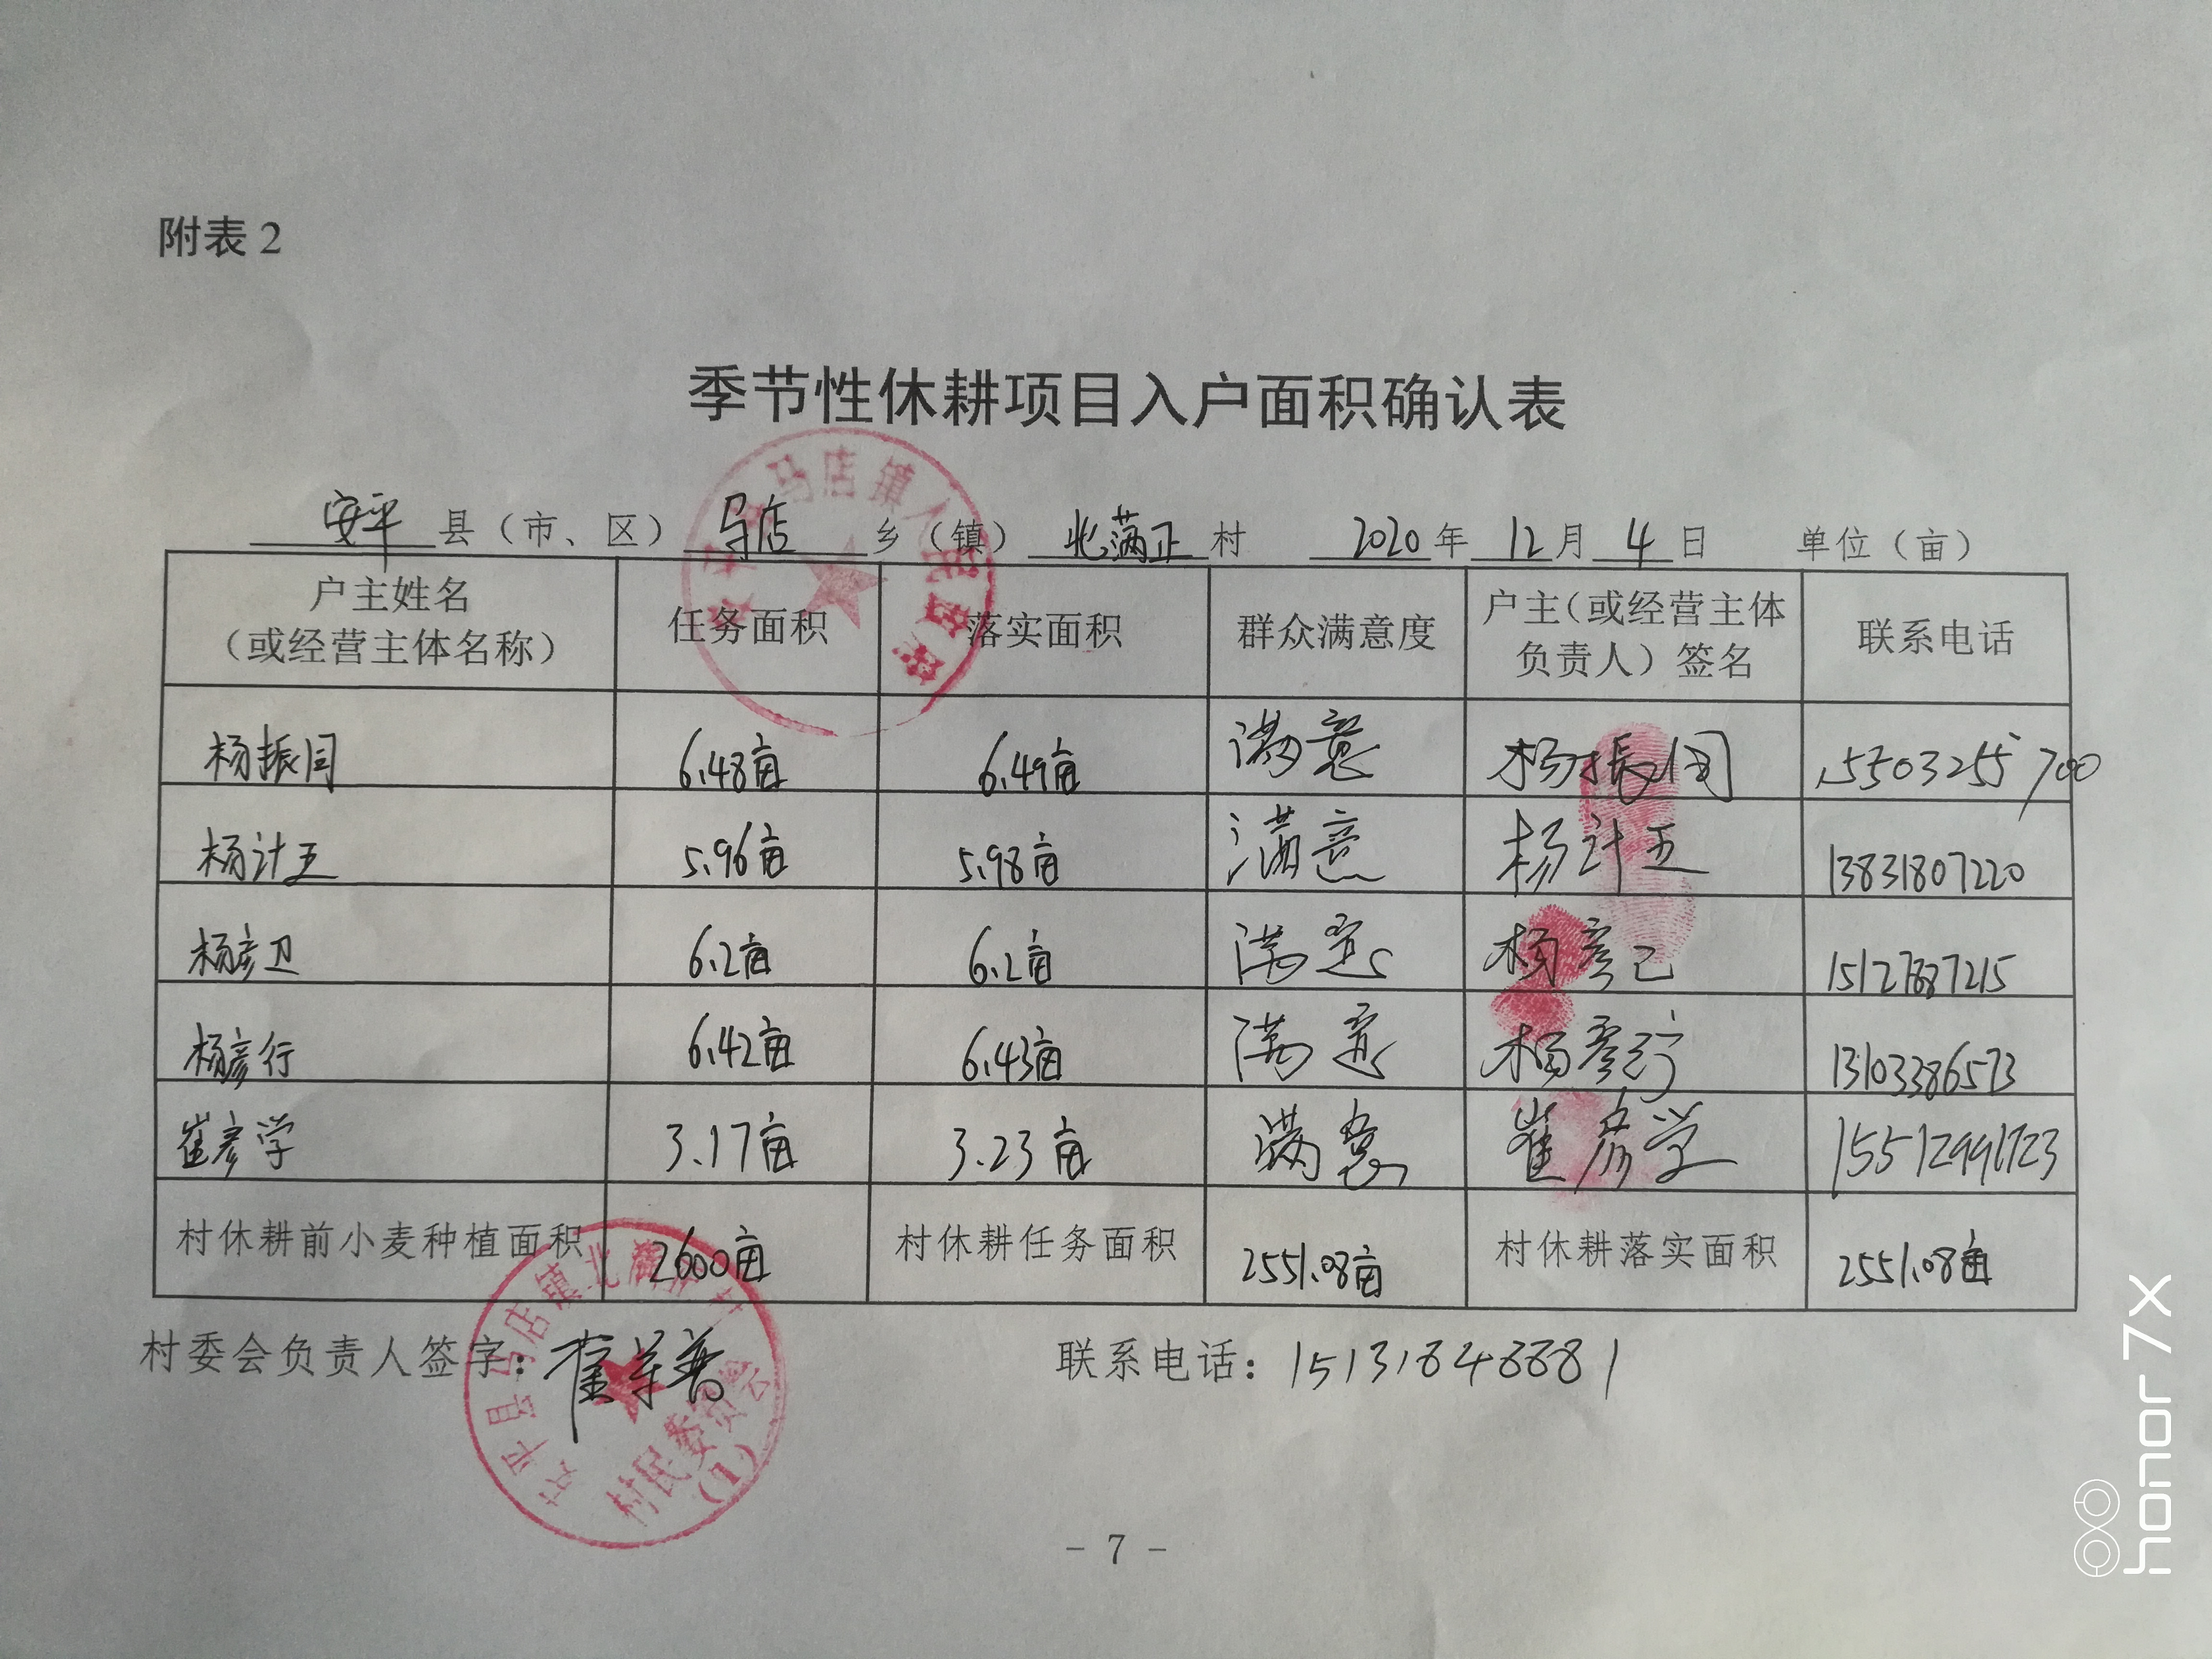 附表2
季节性休耕项目入户面积确认表
安平县（市、区）马店乡（镇）北满正村 2020年12月4日 单位（亩）
户主姓名（或经营主体名称） 任务面积 落实面积 群众满意度 户主（或经营主体负责人）签名 联系电话
杨振闰 6.48亩 6.49亩 满意 杨振闰 15503255700
杨计五 5.96亩 5.98亩 满意 杨计五 13831807220
杨彦卫 6.2亩 6.2亩 满意 杨彦 15127887215
杨彦行 6.42亩 6.43亩 满意 杨彦行 13103386573
崔彦学 3.17亩 3.23亩 满意 崔彦学 15512991723
村休耕前小麦种植面积 2600亩 村休耕任务面积 2551.08亩 村休耕落实面积 2551.08亩
村委会负责人签字：崔 联系电话：15131848881
马店镇人民政府
安平县马店镇北满正村
村民委员会
(1)
- 7 -
honor 7X